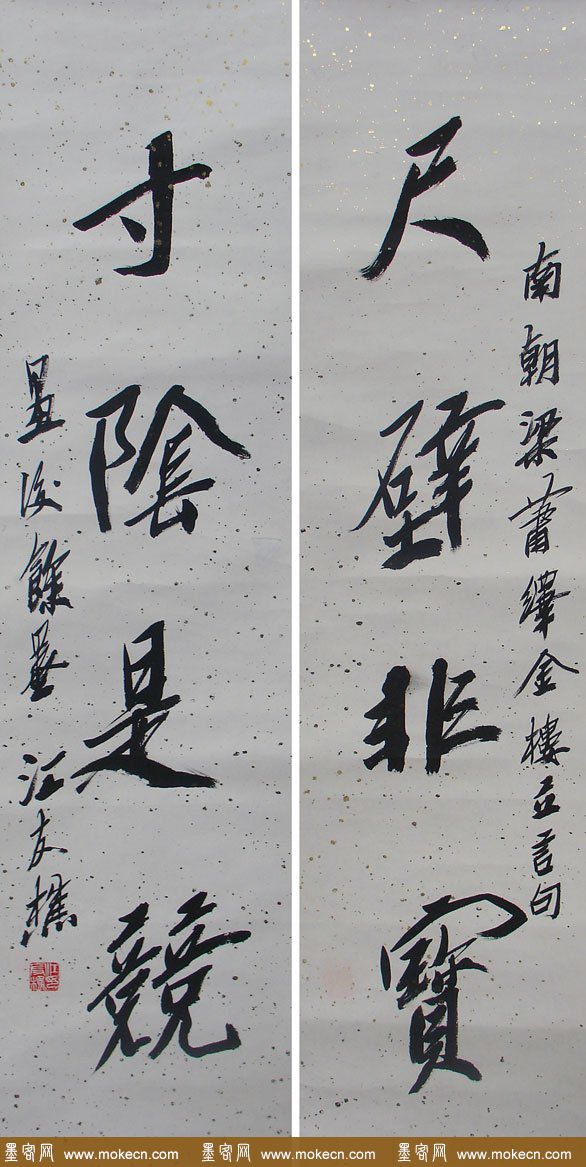 尺璧非寶
南朝梁蕭繹金樓立言句
寸陰是競
後餘墨 江友樵
墨客网 www.mokecn.com 墨客网 www.mokecn.com 墨客网 www.mokecn.com